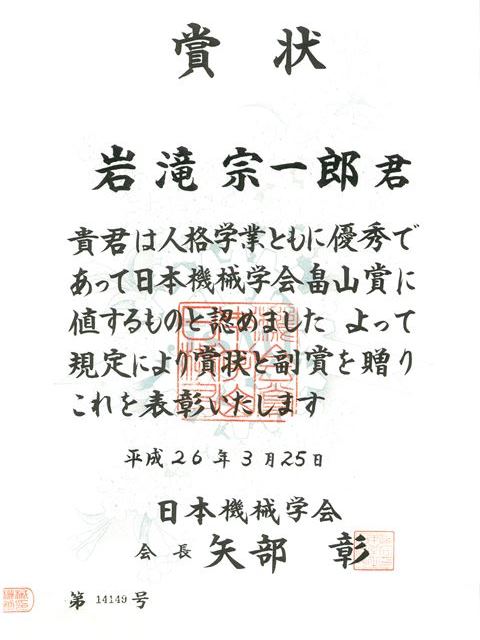 賞状
岩滝宗一郎君
貴君は人格学業ともに優秀で
あって日本機械学会畠山賞に
値するものと認めました よって
規定により賞状と副賞を贈り
これを表彰いたします
平成26年3月25日
日本機械学会
会長 矢部 彰
第 14149 号